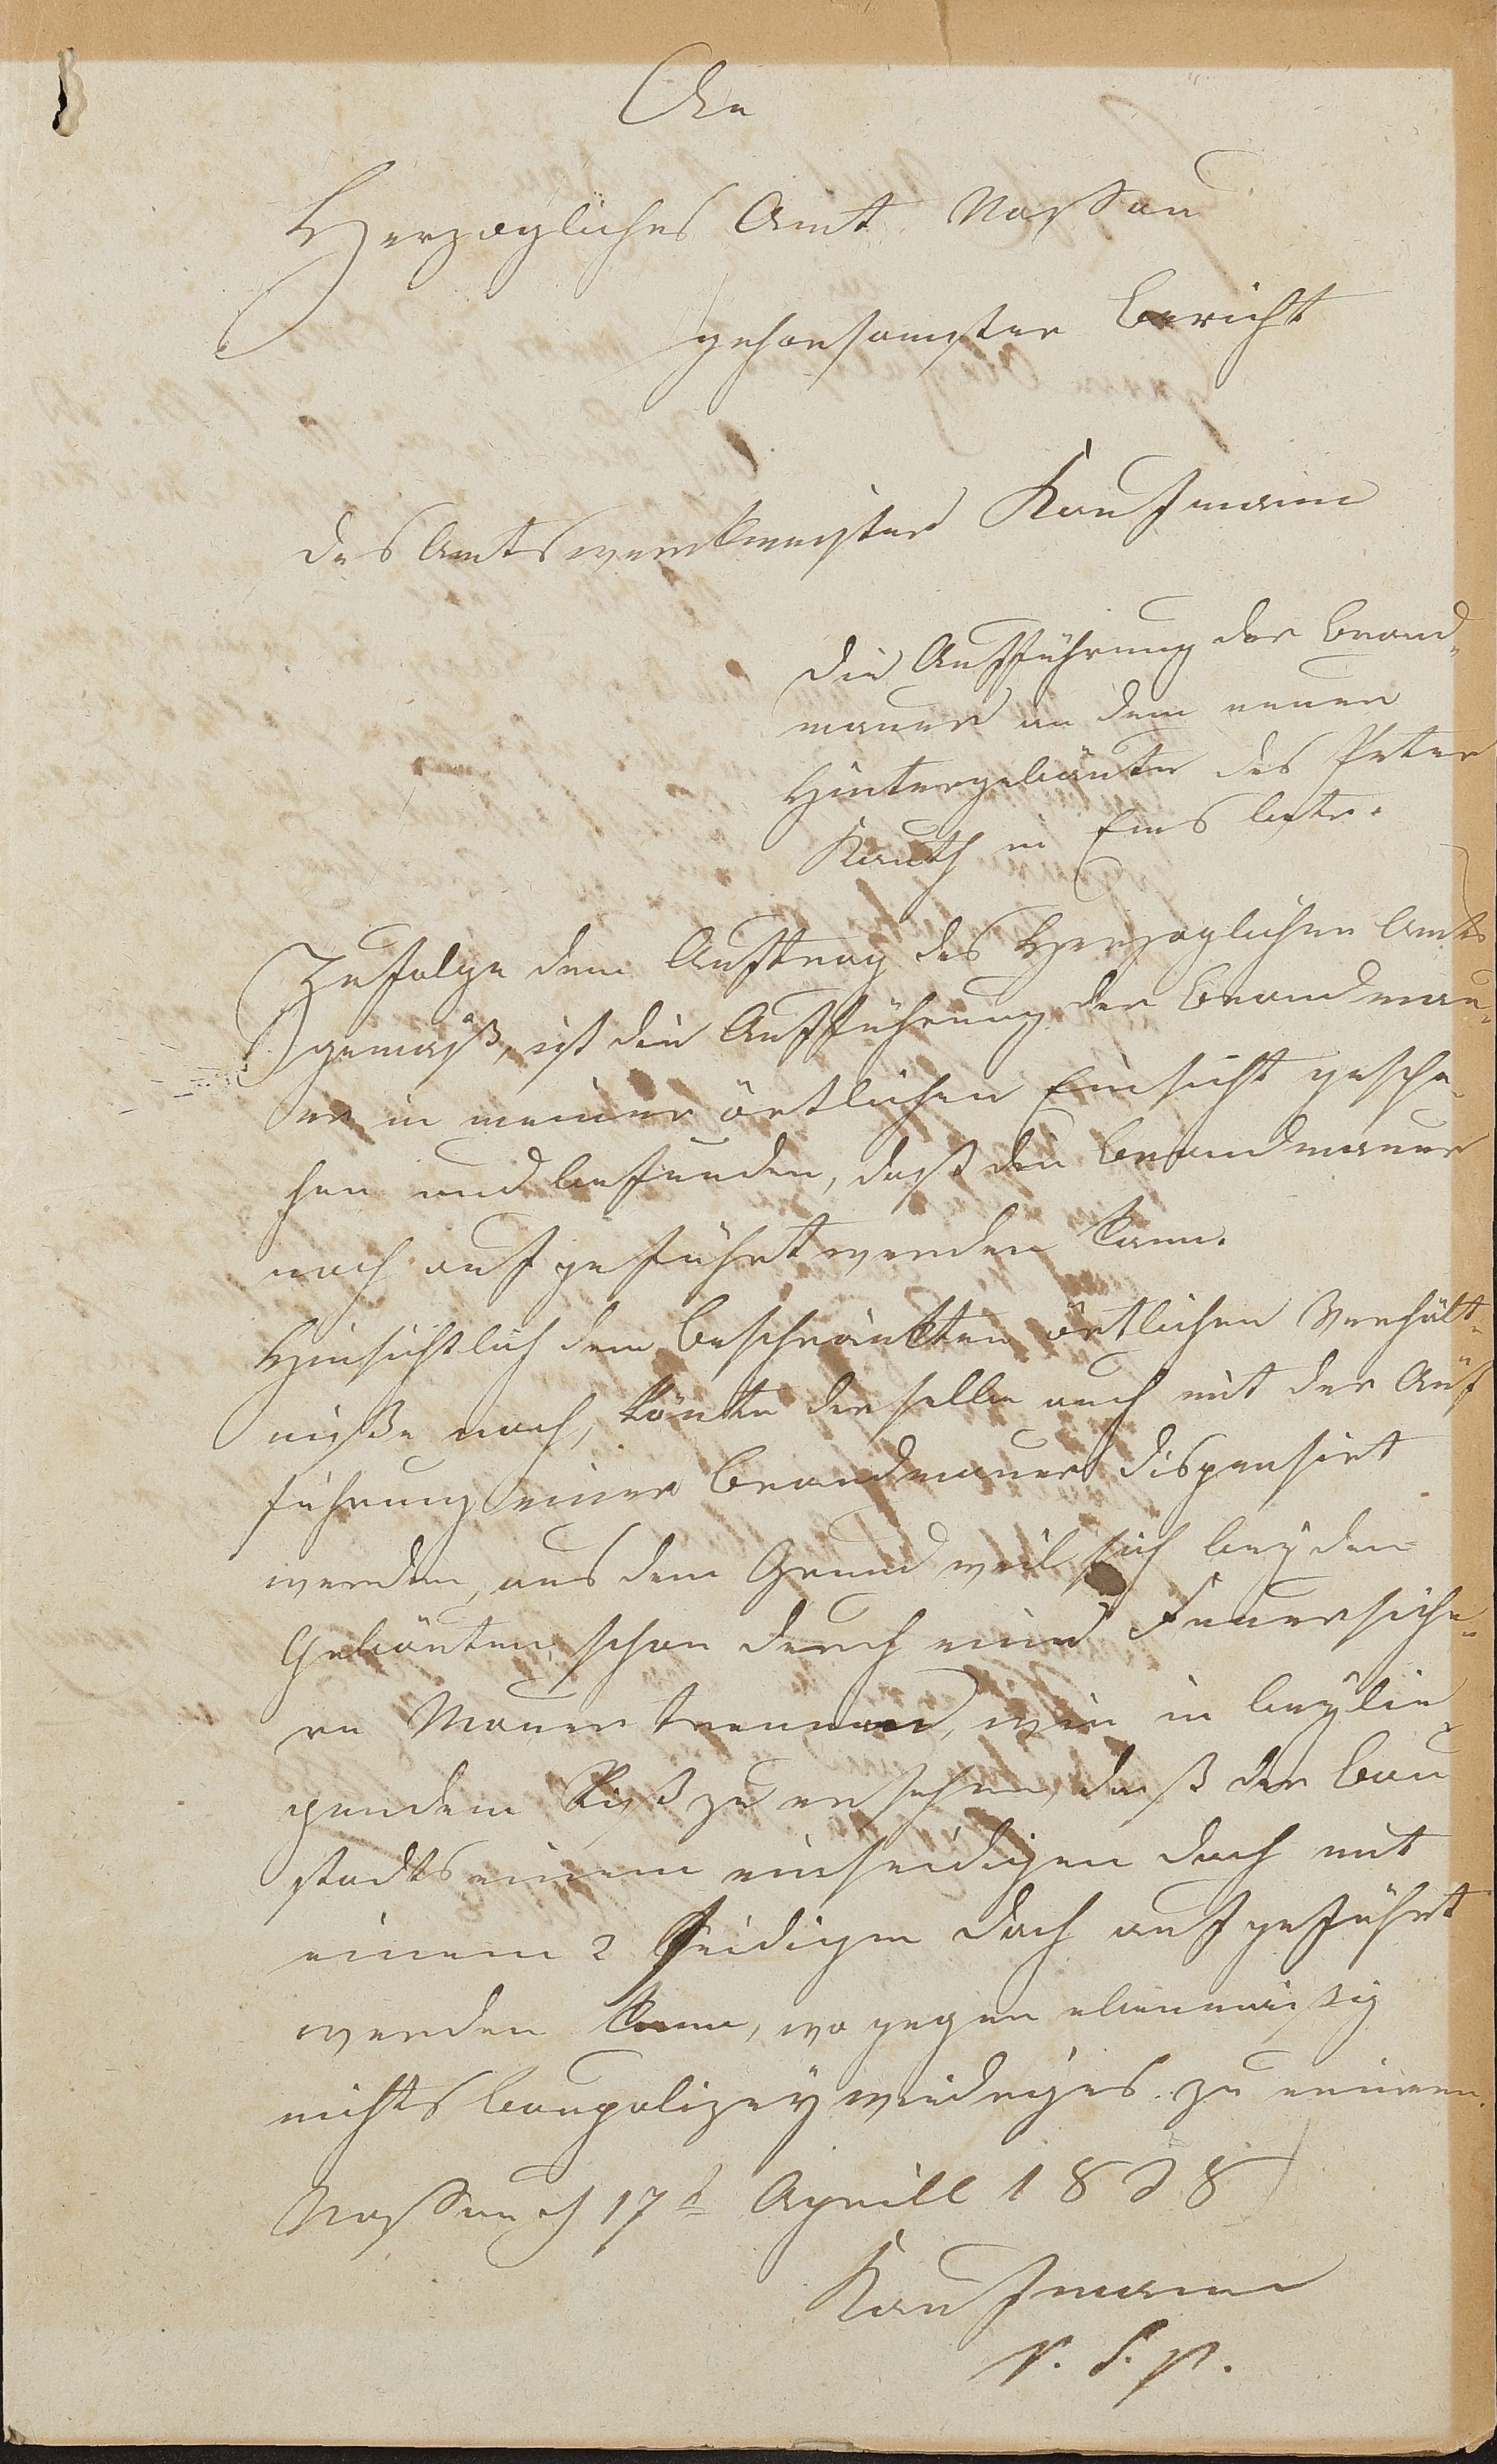 An
Herzogliches Amt Nassau
gehorsamster Bericht
des Amtswerkmeister Kaufmann
die Aufführung der Brand„
mauer an dem neuen
Hintergebäute des Peter
Kauth in Ems betr.
Zufolge dem Auftrag des Herzoglichen Amts
gemäß, ist die Aufführung der Brandmau„
er in meiner örtlichen Einsicht gesche„
hen und befunden, daß die Brandmauer
noch aufgeführt werden kann.
Hinsichtlich dem beschränkten örtlichen Verhält„
niße nach, könte derselbe auch mit der Auf
führung einer Brandmauer dispensirt
werden, aus dem Grund weil sich beyden
Gebäuten, schon durch eine Feuersiche„
re Mauer trennen, wie in beylie„
gendem Riß zu ersehen, daß der Bau
stadts einem einseidigen Dach mit
einem 2 seidigen Dach aufgeführt
werden kann, wo gegen ebenmäßig
nichts baupolizeywiedriges zu erinnern.
Nassau d 17t Aprill 1838
Kaufmann